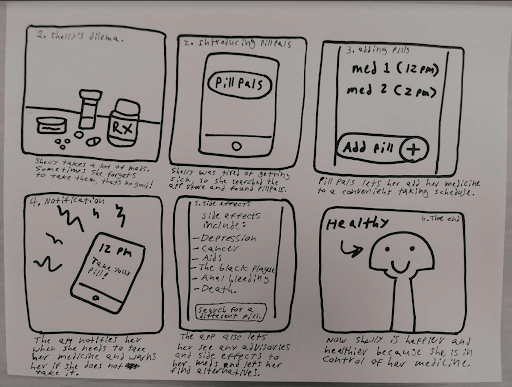 2. Shelly's dilema.
RX
Shelly takes a lot of meds.
Sometimes she forgets
to take them, that's no good!
2. Introducing Pillpals
Pillpals
Shelly was tired of getting
sick, so she searched the
app store and found pillpals.
3. adding pills
med 1 (12pm)
med 2 (2pm)
Add pill +
Pill Pals lets her add her medicine
to a convenient taking schedule.
4. Notification
12 PM
Take your
Pill!
The app notifies her
when she needs to take
her medicine and warns
her if she does not
take it.
5. side effects
side effects
include:
- Depression
- Cancer
- Aids
- The black plague
- Anal bleeding
- Death.
Search for a
different pill.
The app also lets
her see any advisories
and side effects to
her meds and lets her
find alternatives.
6. The end
Healthy
Now shelly is happier and
healthier because she is in
control of her medicine.